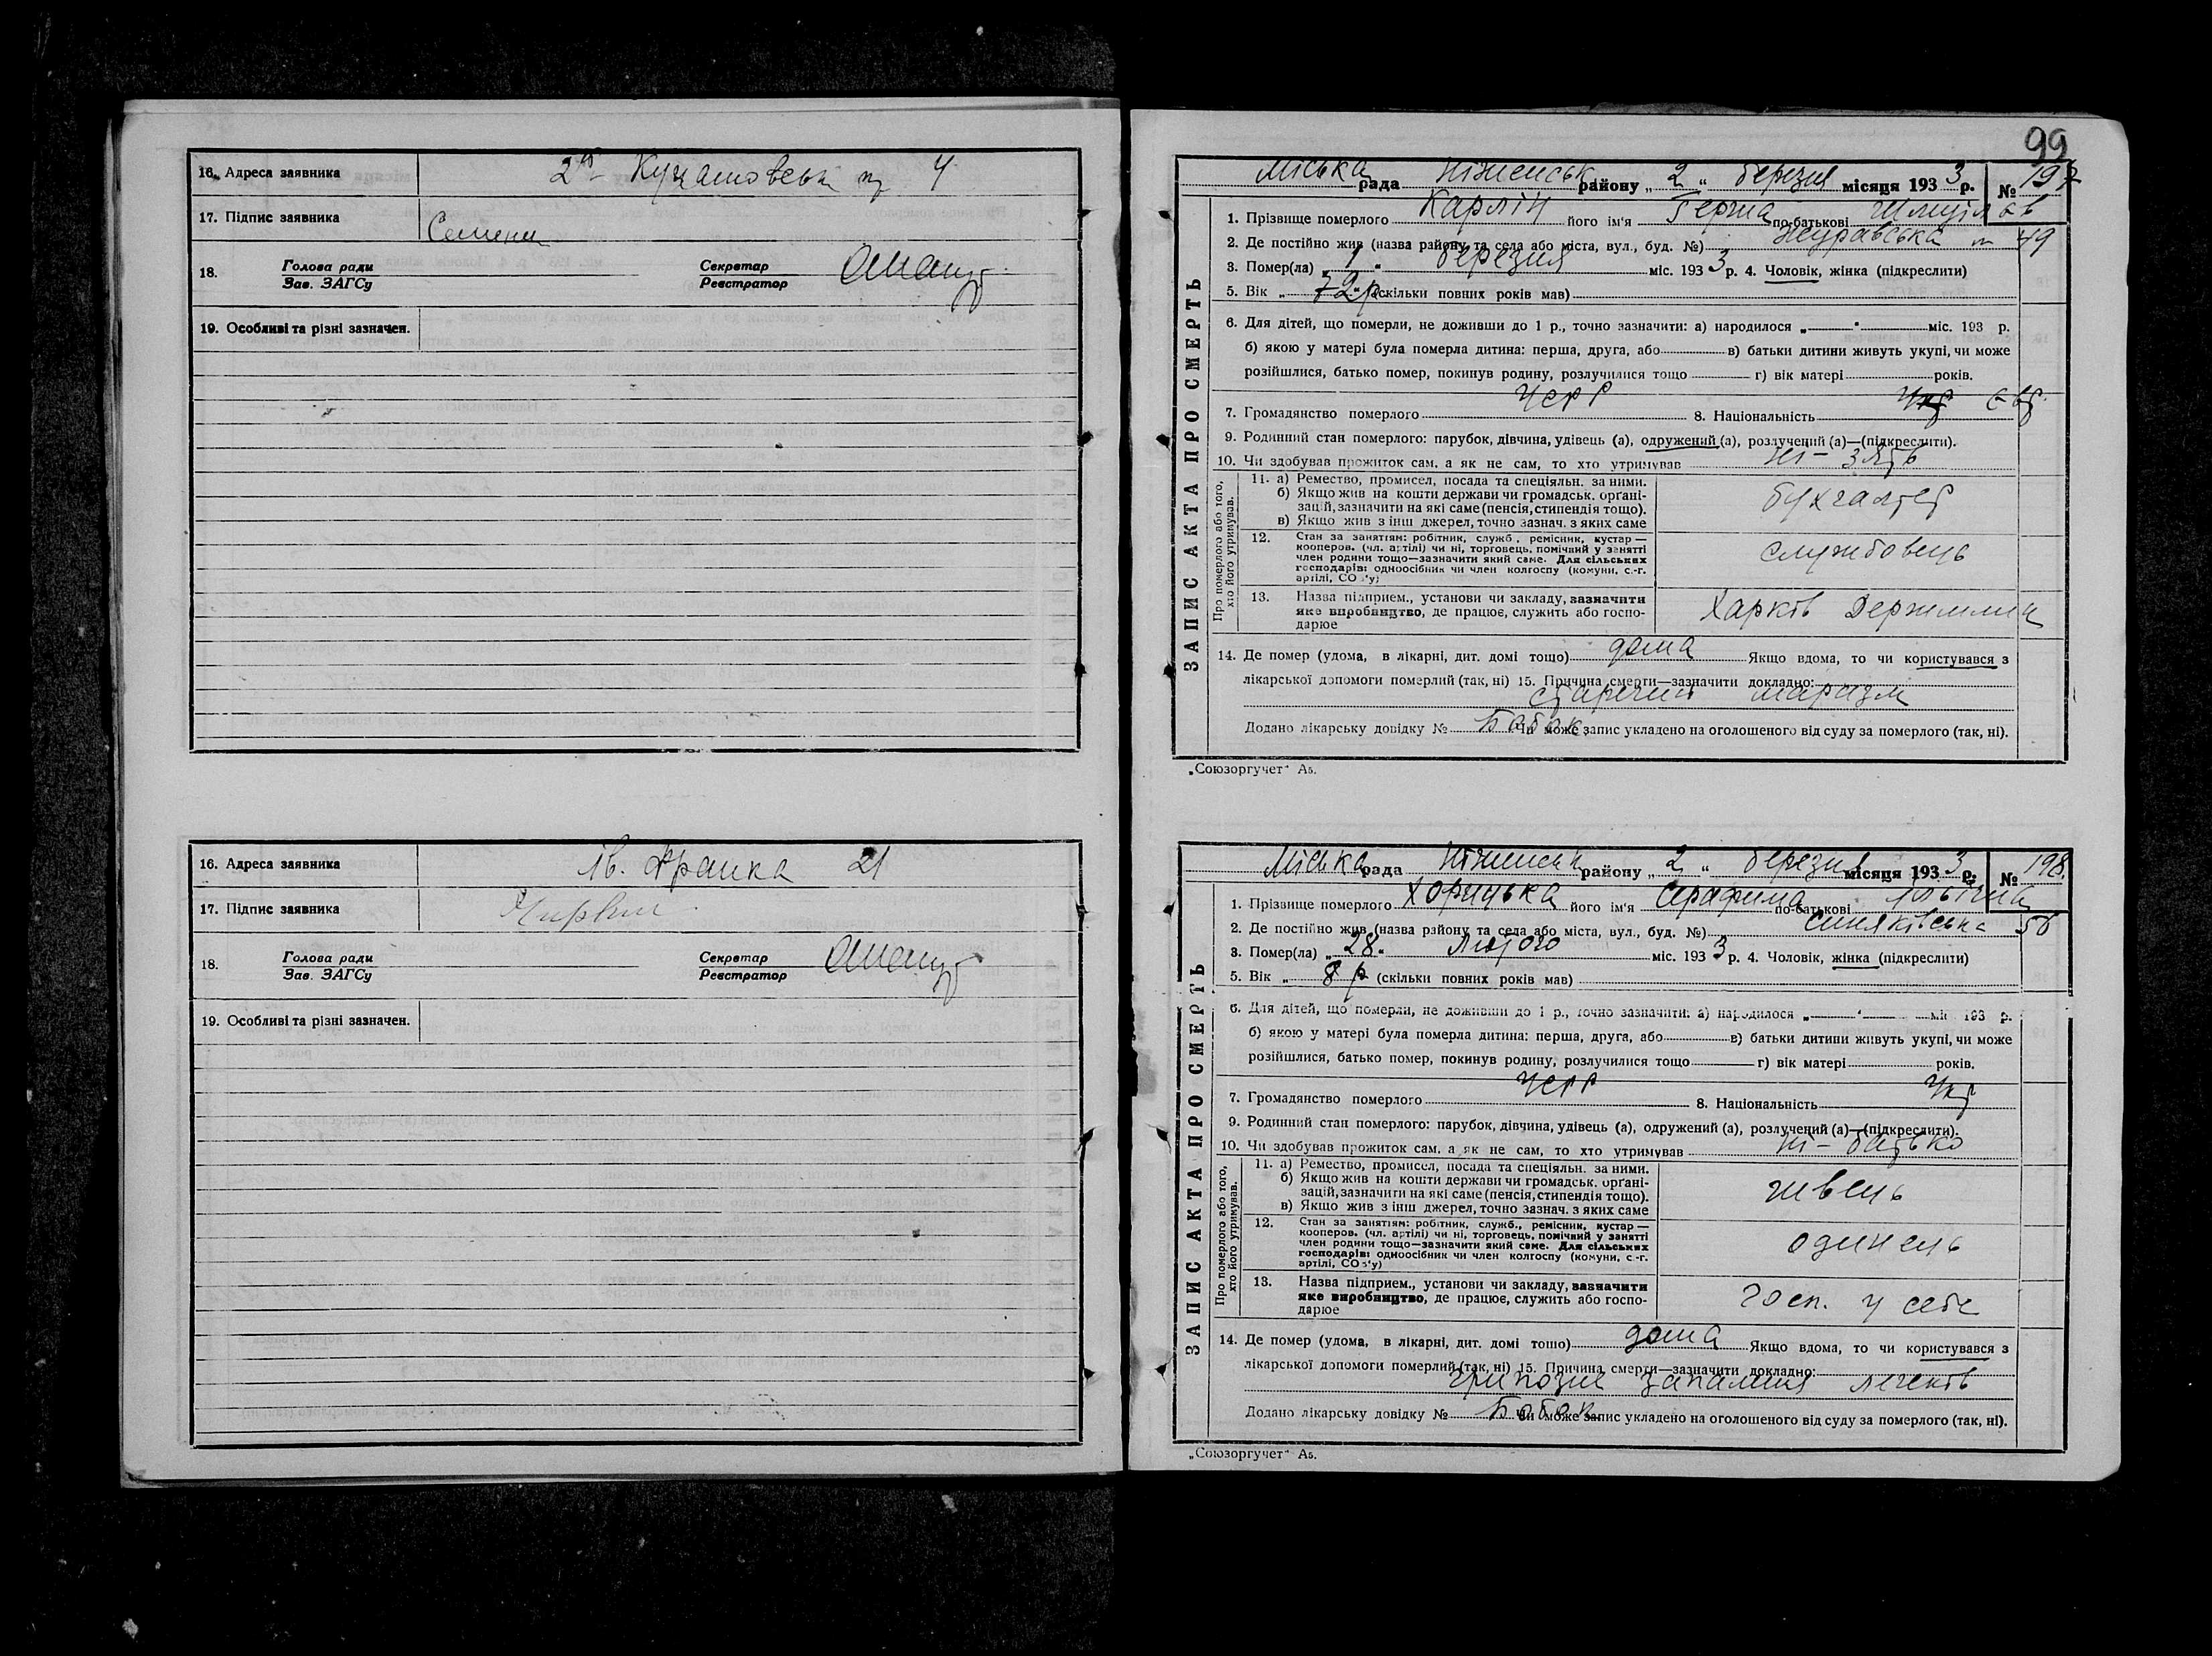 16. Адреса заявника 2га 4
17. Підпис заявника
18. Голова ради Секретар
Зав. ЗАГСу Реєстратор
19. Особливі та різні зазначен.
16. Адреса заявника Ів. Франка 21
17. Підпис заявника
18. Голова ради Секретар
Зав. ЗАГСу Реєстратор
19. Особливі та різні зазначен.
99
Міська рада Ніженськ району „2“ березня місяця 1933 р. № 197
ЗАПИС АКТА ПРО СМЕРТЬ
1. Прізвище померлого Карлін його ім'я Герша по-батькові Шмуілов
2. Де постійно жив (назва району та села або міста, вул., буд. №) 49
3. Помер(ла) „1“ березня міс. 1933 р. 4. Чоловік, жінка (підкреслити)
5. Вік „72 р“ (скільки повних років мав)
6. Для дітей, що померли, не доживши до 1 р., точно зазначити: а) народилося „ “ міс. 193 р.
б) якою у матері була померла дитина: перша, друга, або в) батьки дитини живуть укупі, чи може
розійшлися, батько помер, покинув родину, розлучилися тощо г) вік матері років.
7. Громадянство померлого УСРР 8. Національність Укр Євр.
9. Родинний стан померлого: парубок, дівчина, удівець (а), одружений (а), розлучений (а)—(підкреслити).
10. Чи здобував прожиток сам, а як не сам, то хто утримував ні - зять
Про померлого або того,
хто його утримував.
11. а) Ремество, промисел, посада та спеціяльн. за ними.
б) Якщо жив на кошти держави чи громадськ. орґані-
зацій, зазначити на які саме (пенсія, стипендія тощо).
в) Якщо жив з інш джерел, точно зазнач. з яких саме
бухгалтер
12. Стан за занятіям: робітник, служб., ремісник, кустар—
кооперов. (чл. артілі) чи ні, торговець, помічний у занятті
член родини тощо—зазначити який саме. Для сільських
господарів: одноосібник чи член колгоспу (комуни, с.-г.
артілі, СОЗ'у)
службовець
13. Назва підприєм., установи чи закладу, зазначити
яке виробництво, де працює, служить або госпо-
дарює
Харків
14. Де помер (удома, в лікарні, дит. домі тощо) дома Якщо вдома, то чи користувався з
лікарської допомоги померлий (так, ні) 15. Причина смерти—зазначити докладно:
старечий маразм
Додано лікарську довідку № Бабак Чи може запис укладено на оголошеного від суду за померлого (так, ні).
„Союзоргучет“ А5.
Міська рада Ніженськ району „2“ березня місяця 1933 р. № 198
ЗАПИС АКТА ПРО СМЕРТЬ
1. Прізвище померлого Хорицька його ім'я Серафима по-батькові Ільїнича
2. Де постійно жив (назва району та села або міста, вул., буд. №) Синяківська 56
3. Помер(ла) „28“ Лютого міс. 1933 р. 4. Чоловік, жінка (підкреслити)
5. Вік „8 р (скільки повних років мав)
6. Для дітей, що померли, не доживши до 1 р., точно зазначити: а) народилося „ “ міс 193 р.
б) якою у матері була померла дитина: перша, друга, або в) батьки дитини живуть укупі, чи може
розійшлися, батько помер, покинув родину, розлучилися тощо г) вік матері років.
7. Громадянство померлого УСРР 8. Національність Укр
9. Родинний стан померлого: парубок, дівчина, удівець (а), одружений (а), розлучений (а)—(підкреслити).
10. Чи здобував прожиток сам, а як не сам, то хто утримував ні - батько
Про померлого або того,
хто його утримував.
11. а) Ремество, промисел, посада та спеціяльн. за ними.
б) Якщо жив на кошти держави чи громадськ. орґані-
зацій, зазначити на які саме (пенсія, стипендія тощо).
в) Якщо жив з інш джерел, точно зазнач. з яких саме
швець
12. Стан за занятіям: робітник, служб., ремісник, кустар—
кооперов. (чл. артілі) чи ні, торговець, помічний у занятті
член родини тощо—зазначити який саме. Для сільських
господарів: одноосібник чи член колгоспу (комуни, с.-г.
артілі, СОЗ'у)
одинець
13. Назва підприєм., установи чи закладу, зазначити
яке виробництво, де працює, служить або госпо-
дарює
госп. у себе
14. Де помер (удома, в лікарні, дит. домі тощо) дома Якщо вдома, то чи користувався з
лікарської допомоги померлий (так, ні) 15. Причина смерти—зазначити докладно:
грипозне запалення легенів
Додано лікарську довідку № Бабак Чи може запис укладено на оголошеного від суду за померлого (так, ні).
„Союзоргучет“ А5.